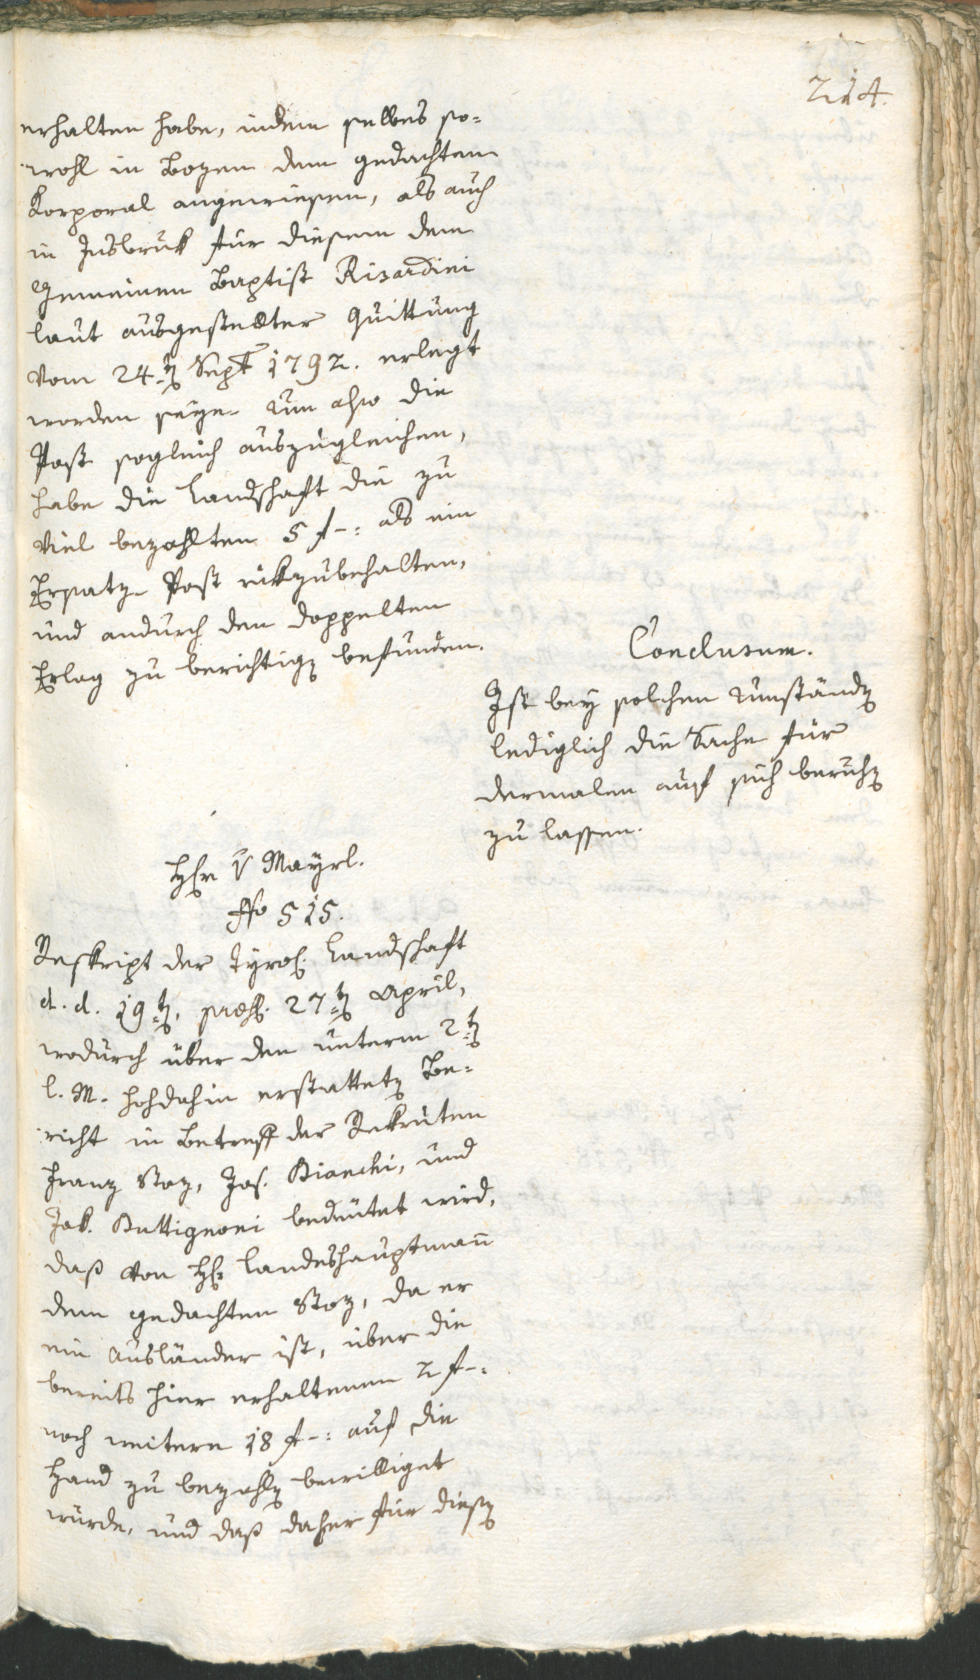 214.
erhalten habe, indem selbes so=
wohl in Bozen dem gedachten
Korporal angewiesen, als auch
in Insbruk für diesem dem
Gemeinen Baptist Rizardini
laut ausgestellter Quittung
vom 24.ten Sept 1792. erlegt
worden seye. Um also die
Post sogleich auszugleichen,
habe die Landschaft die zu
viel bezahlten 5 f-: als ein
Ersatz- Post rükzubehalten,
und andurch den doppelten
Erlag zu berichtigen befunden.
Conclusum.
Ist bey solchen Umständen
lediglich die Sache für
dermalen auf sich beruhen
zu lassen.
Herr v Mayrl.
No 515.
Reskript der Tyrol. Landschaft
d. d. 19.ten, præs. 27.ten April,
wodurch über den unterm 2.ten
l. M. hohdahin erstatteten Be=
richt in Betreff der Rekruten
Franz Stoz, Jos. Bianchi, und
Jak. Buttignoni bedeutet wird,
daß von Hr Landeshauptmann
dem gedachten Stoz, da er
ein Ausländer ist, über die
bereits hier erhaltenen 2 f-:
noch weitere 18 f-: auf die
Hand zu bezahlen bewilliget
wurde, und daß daher für diesen